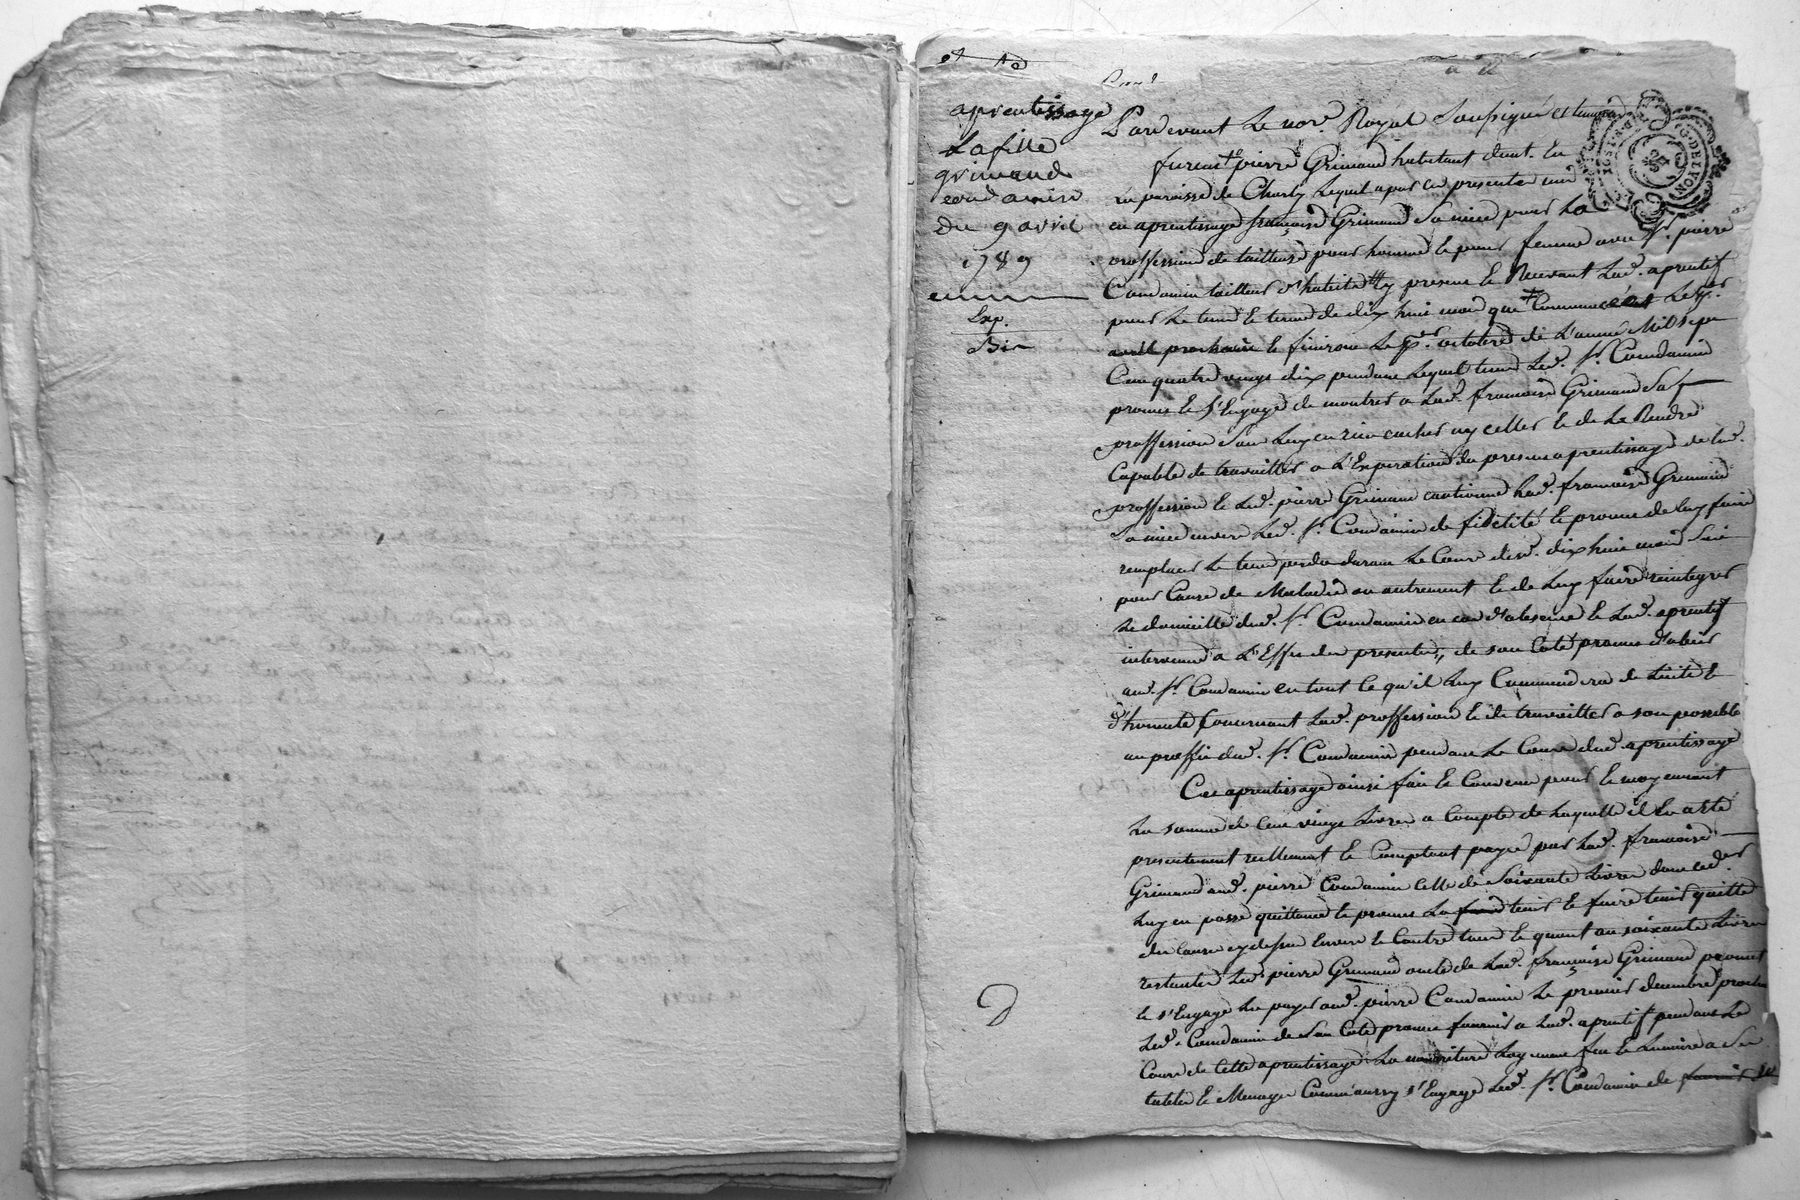 aprentissage
La fille
grimand
condamin
du 9 avril
1789
Exp.
Pardevant Le no.re Royal Soussigné et temoins
furent pierre Grimand habitant dud. lieu
paroisse de Charly Lequel apar ces presentes mis
en aprentissage françoise Grimand Sa niece pour La
proffession de tailleuse pour homme et pour femme avec sr. pierre
Condamin tailleur d'habits icy present et Recevant Lad. aprentif
pour Le tems et terme de dix huit mois qui Commenceront Le pr.
avril prochain et finiront Le pr. octobre de L'année Mil Sept
Cent quatre vingt dix pendant Lequel tems Led. Sr. Condamin
promet et s'Engage de montrer a Lad. francoise Grimand Sa
proffession Sans Luy en rien cacher ny celler et de La Rendre
Capable de travailler a L'Expiration du present aprentissage de lad.
proffession et Led. pierre Grimand cautionne Lad. francoise Grimand
Sa niece envers Led. Sr. Condamin de fidelité et promet de luy faire
remplacer Le tems perdu durant Le Cours desd. dix huit mois Soit
pour Cause de Maladie ou autrement et de Luy faire reintegrer
Le domicille dud. Sr. Condamin en cas d'absence et Lad. aprentif
intervenue a L'Effet des presentes, de son Coté promet d'obeir
aud. Sr. Condamin en tout ce qu'il Luy Commandera de Licite et
d'honnete Concernant Lad. proffession et de travailler a son possible
au proffit dud. Sr. Condamin pendant Le Cours dud. aprentissage
Cet aprentissage ainsi fait et Convenu pour et moyennant
La somme de Cent vingt Livres a Compte de Laquelle il en a été
presentement reellement et Comptant payée par Lad. francoise
Grimand aud. pierre Condamin celle de Soixante Livres dont ced.
Luy en passe quittance et promet La faire tenir et faire tenir quitte
du Cause cy dessus Envers et Contre tous et quant aux soixante Livres
restantes Led. pierre Grimand oncle de Lad. françoise Grimand promet
et s'Engage Les payer aud. pierre Condamin Le premier decembre prochain
Led. Condamin de Son Coté promet fournir a Lad. aprentif pendant Le
Cours de Cette aprentissage La nourriture Logement feu et Lumiere a Ses
table et Menage Comm'aussy s'Engage Led. Sr. Condamin de fournir